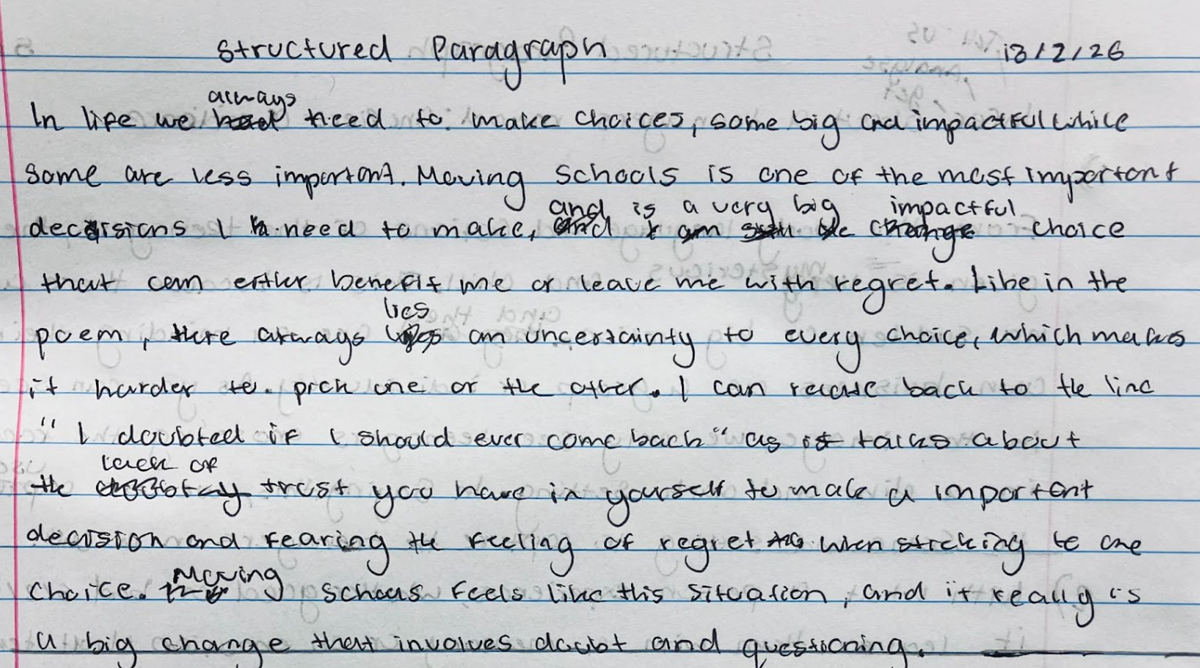 Structured Paragraph 13/2/26
In life we always need to make choices, some big and impactful while
some are less important. Moving schools is one of the most important
decisions I need to make, and is a very big impactful choice
that can either benefit me or leave me with regret. Like in the
poem, there always lies an uncertainty to every choice, which makes
it harder to pick one or the other. I can relate back to the line
"I doubted if I should ever come back" as it talks about
the lack of trust you have in yourself to make a important
decision and fearing the feeling of regret when sticking to one
choice. Moving schools feels like this situation, and it really is
a big change that involves doubt and questioning.